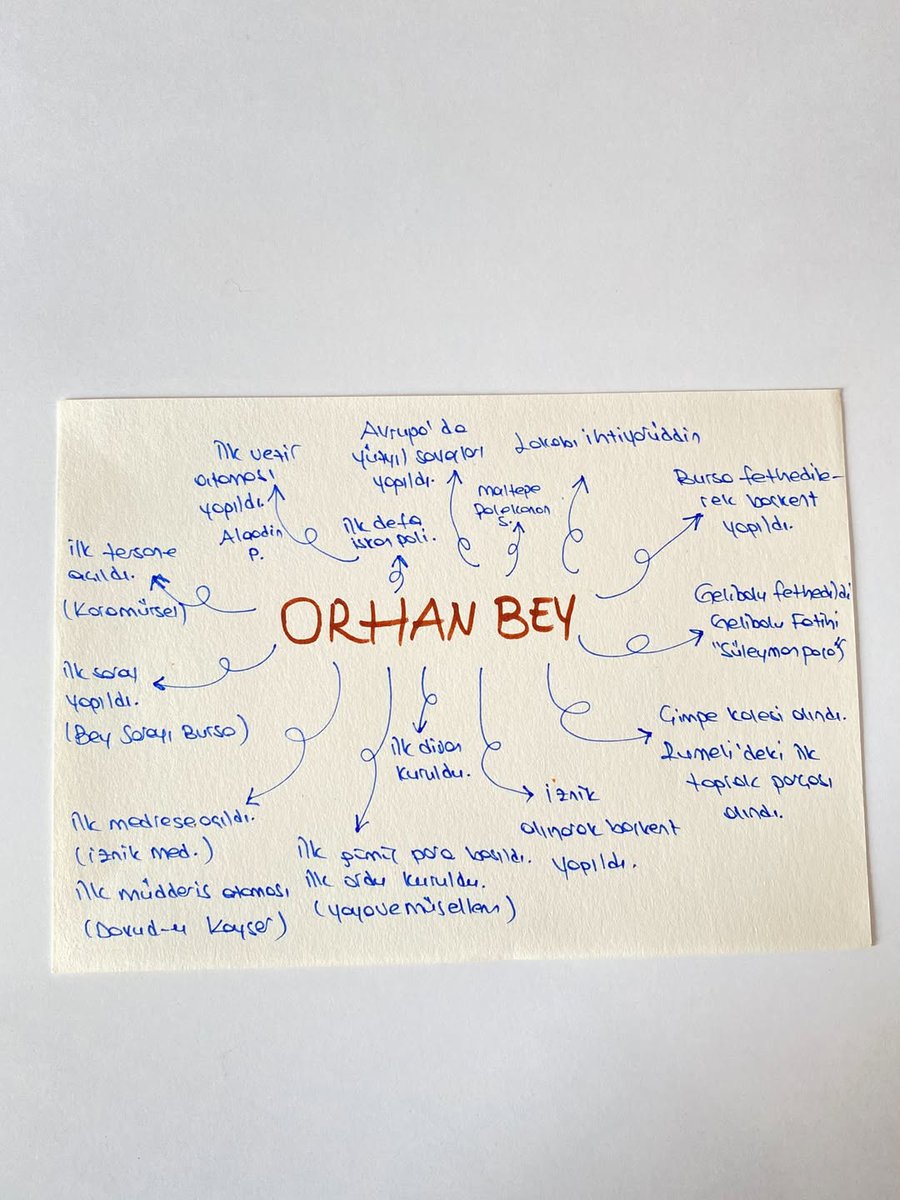 İlk vezir
ataması
yapıldı.
Alaadin
P.
Avrupa'da
yüzyıl savaşları
yapıldı.
Lakabı ihtiyarüddin
Maltepe
Palekanon
S.
ilk defa
iskan poli.
Bursa fethedile-
rek başkent
yapıldı.
ilk tersane
açıldı.
(Karamürsel)
ORHAN BEY
Gelibolu fethedildi
Gelibolu Fatihi
"Süleyman paşa"
ilk saray
yapıldı.
(Bey Sarayı Bursa)
Çimpe kalesi alındı.
Rumeli'deki ilk
toprak parçası
alındı.
ilk divan
kuruldu.
İznik
alınarak başkent
yapıldı.
ilk medrese açıldı.
(iznik med.)
ilk müdderis ataması
(Davud-u Kayser)
ilk gümüş para basıldı.
ilk ordu kuruldu.
(yaya ve müsellem)